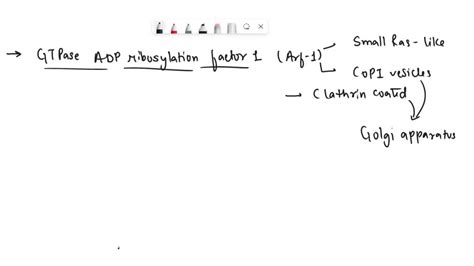 → GTPase ADP ribosylation factor 1 (Arf-1)
Small Ras-like
COPI vesicles
→ Clathrin coated
Golgi apparatus